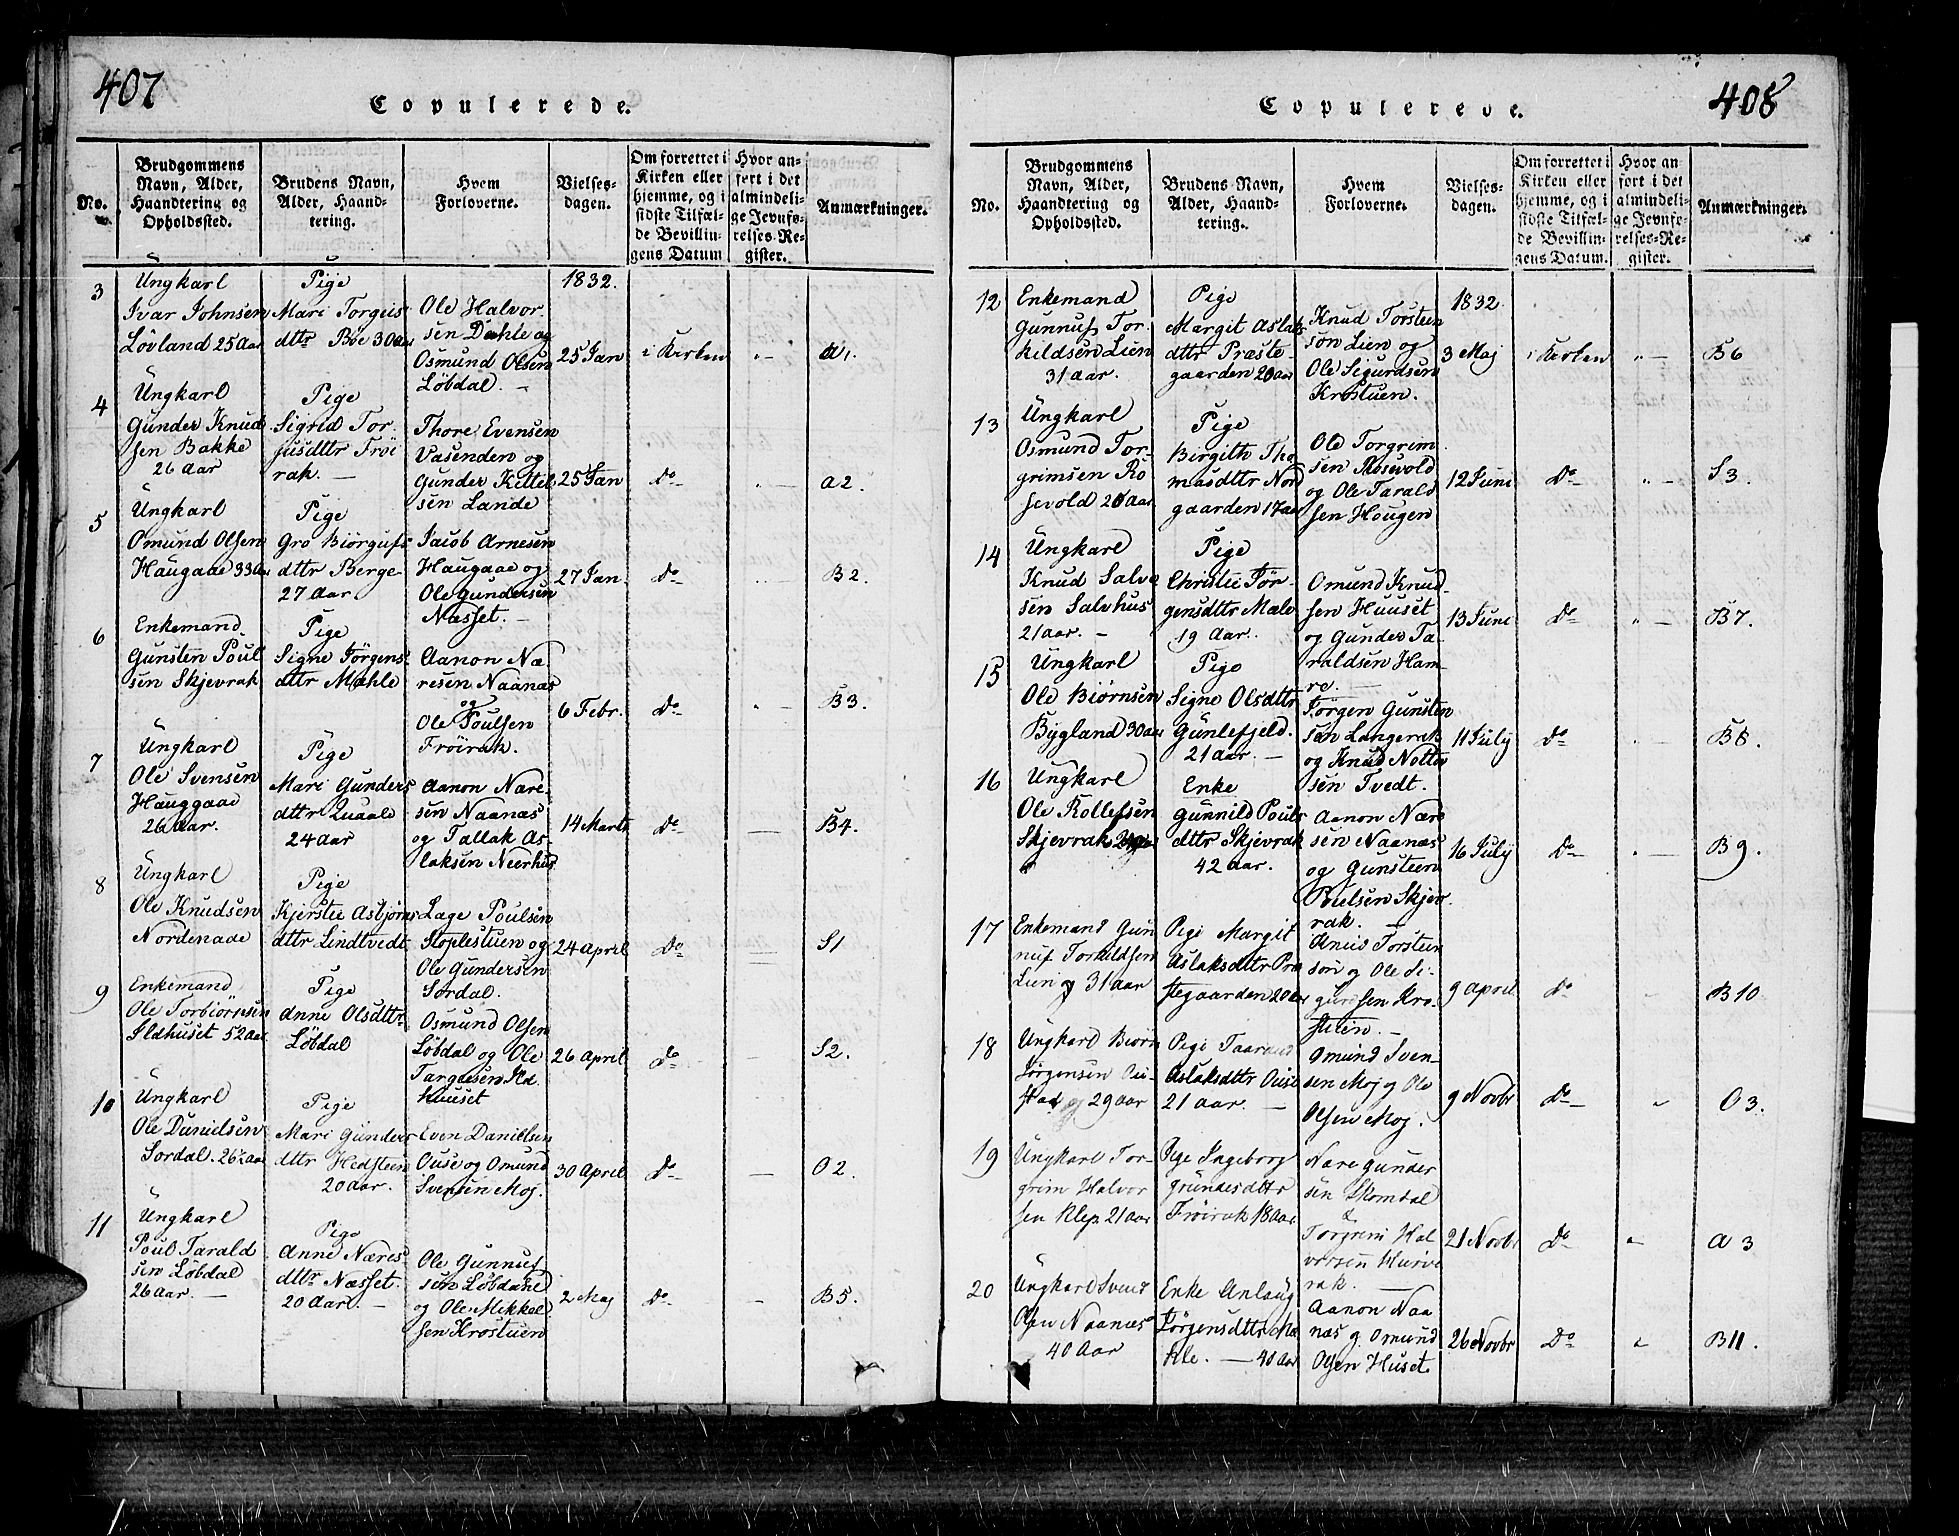 407
Copulerede.
No.
Brudgommens Navn, Alder, Haandtering og Opholdssted.
Brudens Navn, Alder, Haandtering.
Hvem Forloverne.
Vielsesdagen.
Om forrettet i Kirken eller hjemme, og i sidste Tilfælde Bevillingens Datum
Hvor anført i det almindelige Jevnførelses-Register.
Anmærkninger.
3
Ungkarl
Ivar Johnsen
Lövland 25 Aar
Pige
Mari Torgeis
dttr Böe 30 Aar
Ole Halvor
sen Dahle og
Osmund Olsen
Löbdal. —
1832.
25 Jan
i Kirken
A1.
4
Ungkarl
Gunder Knud
sen Bakke
26 Aar
Pige
Sigrid Tor
jusdttr Fröi
rak. —
Thore Evensen
Vasenden og
Gunder Kittel
sen Lande
25 Jan
Do
A2.
5
Ungkarl
Omund Olsen
Haugaae 33 Aar
Pige
Gro Biörgufs
dttr Berge
27 Aar
Jacob Arnesen
Haugaae og
Ole Gundersen
Næsset. —
27 Jan
Do
B2.
6
Enkemand
Gunsten Poul
sen Skjevrak
Pige
Signe Jörgens
dttr Mæhle
Aanon Næ
resen Naanæs
og
Ole Poulsen
Fröirak.
6 Febr.
Do
B3.
7
Ungkarl
Ole Svensen
Hauggaae
26 Aar.
Pige
Mari Gunders
dttr Quaale
24 Aar
Aanon Nære
sen Naanæs
og Tallak As
laksen Neerhus
14 Marts
Do
B4.
8
Ungkarl
Ole Knudsen
Nordenaae
Pige
Kjerstie Asbjörns
dttr Lindtvedt
Lage Poulsen
Stoplestuen og
Ole Gundersen
Sordal.
24 April
Do
S1
9
Enkemand
Ole Torbiörnsen
Ildhuset 52 Aar
Pige
Anne Olsdttr
Löbdal
Osmund Olsen
Löbdal og Ole
Targesen Ild
huuset
26 April
Do
S2.
10
Ungkarl
Ole Danielsen
Sordal. 26½ Aar
Pige
Mari Gunders
dttr Hedsteen
20 Aar.
Even Danielsen
Ouse og Omund
Svensen Moj.
30 April
Do
O2.
11
Ungkarl
Poul Tarald
sen Löbdal
26 Aar. —
Pige
Anne Næres
dttr Næsset.
20 Aar. —
Ole Gunnuf
sen Löbdahl
og Ole Mikkel
sen Krostuen
2 Maj
Do
B5.
408
Copulerede.
No.
Brudgommens Navn, Alder, Haandtering og Opholdssted.
Brudens Navn, Alder, Haandtering.
Hvem Forloverne.
Vielsesdagen.
Om forrettet i Kirken eller hjemme, og i sidste Tilfælde Bevillingens Datum.
Hvor anført i det almindelige Jevnførelses-Register.
Anmærkninger.
12
Enkemand
Gunnuf Tor
kildsen Lien
31 aar.
Pige
Margit Aslaks
dttr Præste
gaarden 20 Aar
Knud Torsteen
søn Lien og
Ole Sigurdsen
Krostuen.
1832
3 Maj
i Kirken
B6
13
Ungkarl
Osmund Tor
grimsen Ro
sevold 20 Aar
Pige
Birgith Tho
masdttr Nor
gaarden 17 aar
Ole Torgrim
sen Rosevold
og Ole Tarald
sen Hougen
12 Juni
Do
S3.
14
Ungkarl
Knud Salve
sen Salvhus
21 aar. —
Pige
Christie Jör
gensdttr Mæle
19 Aar.
Omund Knud
sen Huuset
og Gunder Ta
raldsen Ham
re. —
13 Juni
Do
B7.
15
Ungkarl
Ole Biörnsen
Bygland 30 Aar
Pige
Signe Olsdttr
Gunlefjeld.
21 aar. —
Jörgen Gunsten
sen Langerak
og Knud Notto
sen Tvedt.
11 July
Do
B8.
16
Ungkarl
Ole Rollefsen
Skjevrak
Enke
Gunnild Pouls
dttr Skjevrak
42 aar.
Aanon Nære
sen Naanæs
og Gunsteen
Poulsen Skjev
rak. —
16 July
Do
B9.
17
Enkemand Gun
nuf Torkildsen
Lien 31 aar
Pige Margit
Aslaksdttr Præ
stegaarden 20 Aar
Knud Torsteen
sön og Ole Si
gurdsen Kro
stuen. —
9 April
Do
B10
18
Ungkarl Biörn
Jörgensen Ou
stad 29 aar
Pige Taarand
Aslaksdttr Oust
21 aar. —
Omund Sven
sen Moj og Ole
Olsen Moj.
9 Novbr
Do
O3.
19
Ungkarl Tor
grim Halvor
sen Klep 21 aar
Pige Ingeborg
Grundesdttr
Fröirak 18 Aar
Nære Gunder
sen Skomdal
&
Torgrim Hal
vorsen Hurve
rak. —
21 Novbr
Do
A3
20
Ungkarl Svend
Olsen Naanæs
40 Aar
Enke Anlaug
Jörgensdttr Mæ
hle. — 40 Aar
Aanon Naa
næs g. Omund
Olsen Huset
26 Novbr
Do
B11.